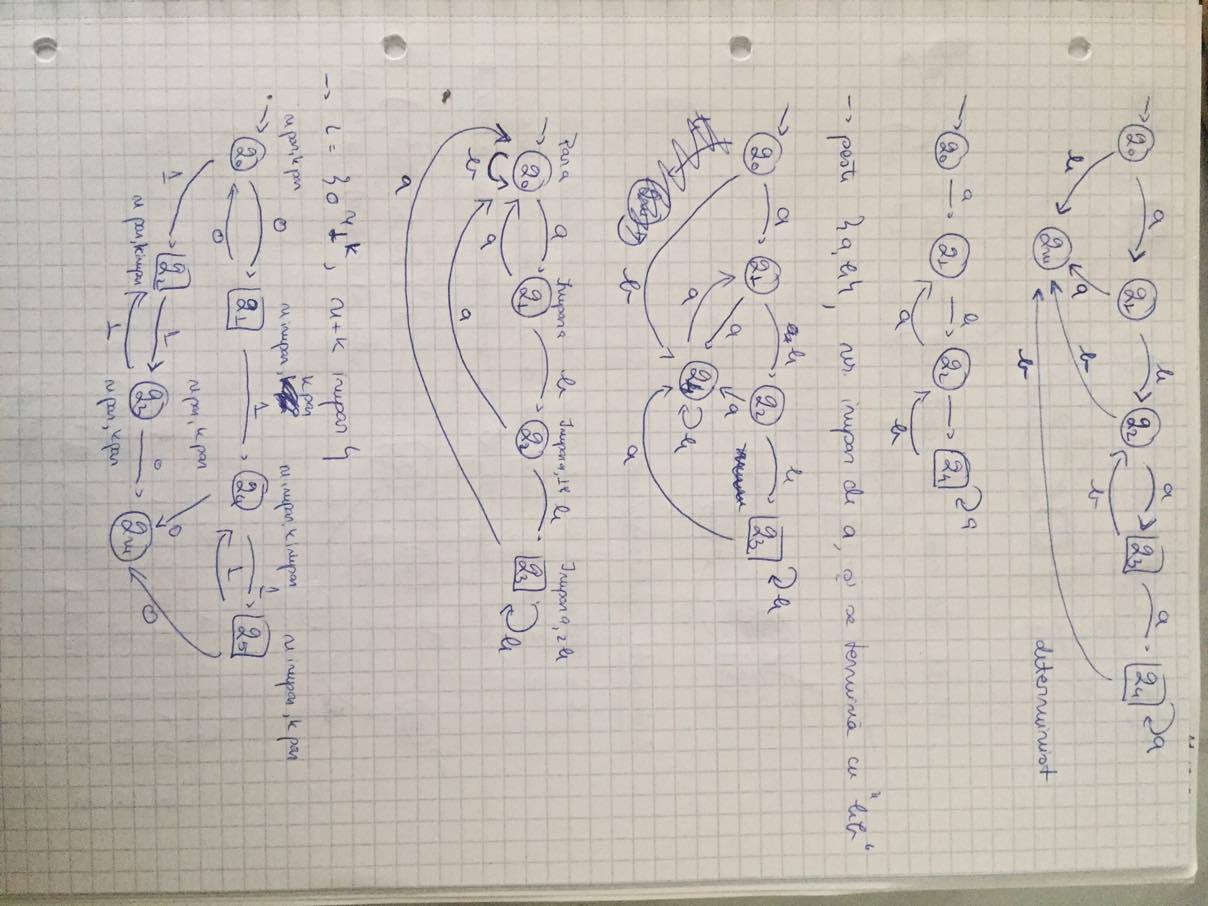 → q₀ a q₁ b q₂ a q₃ a q₄ a
b a b b b
qᵤ
determinist
→ q₀ a q₁ b q₂ q₄ a
a b
→ peste {a,b}, nr. impar de a, și se termină cu "bb"
→ q₀ a q₁ b q₂ b q₃ b
b a a q₄ a b a
Par a Impar a Impar a, 1x b Impar a, 2 b
→ q₀ a q₁ b q₂ q₃ b
b a a a
→ L = {0ⁿ1ᵏ, n+k impar}
n par, k par n impar, k par n impar, k impar n impar, k par
→ q₀ 0 q₁ 1 q₄ 1 q₅
1 0 0 1 0
q₂ 1 q₃ 0 qᵤ
n par, k impar 1 n par, k par
n par, k par